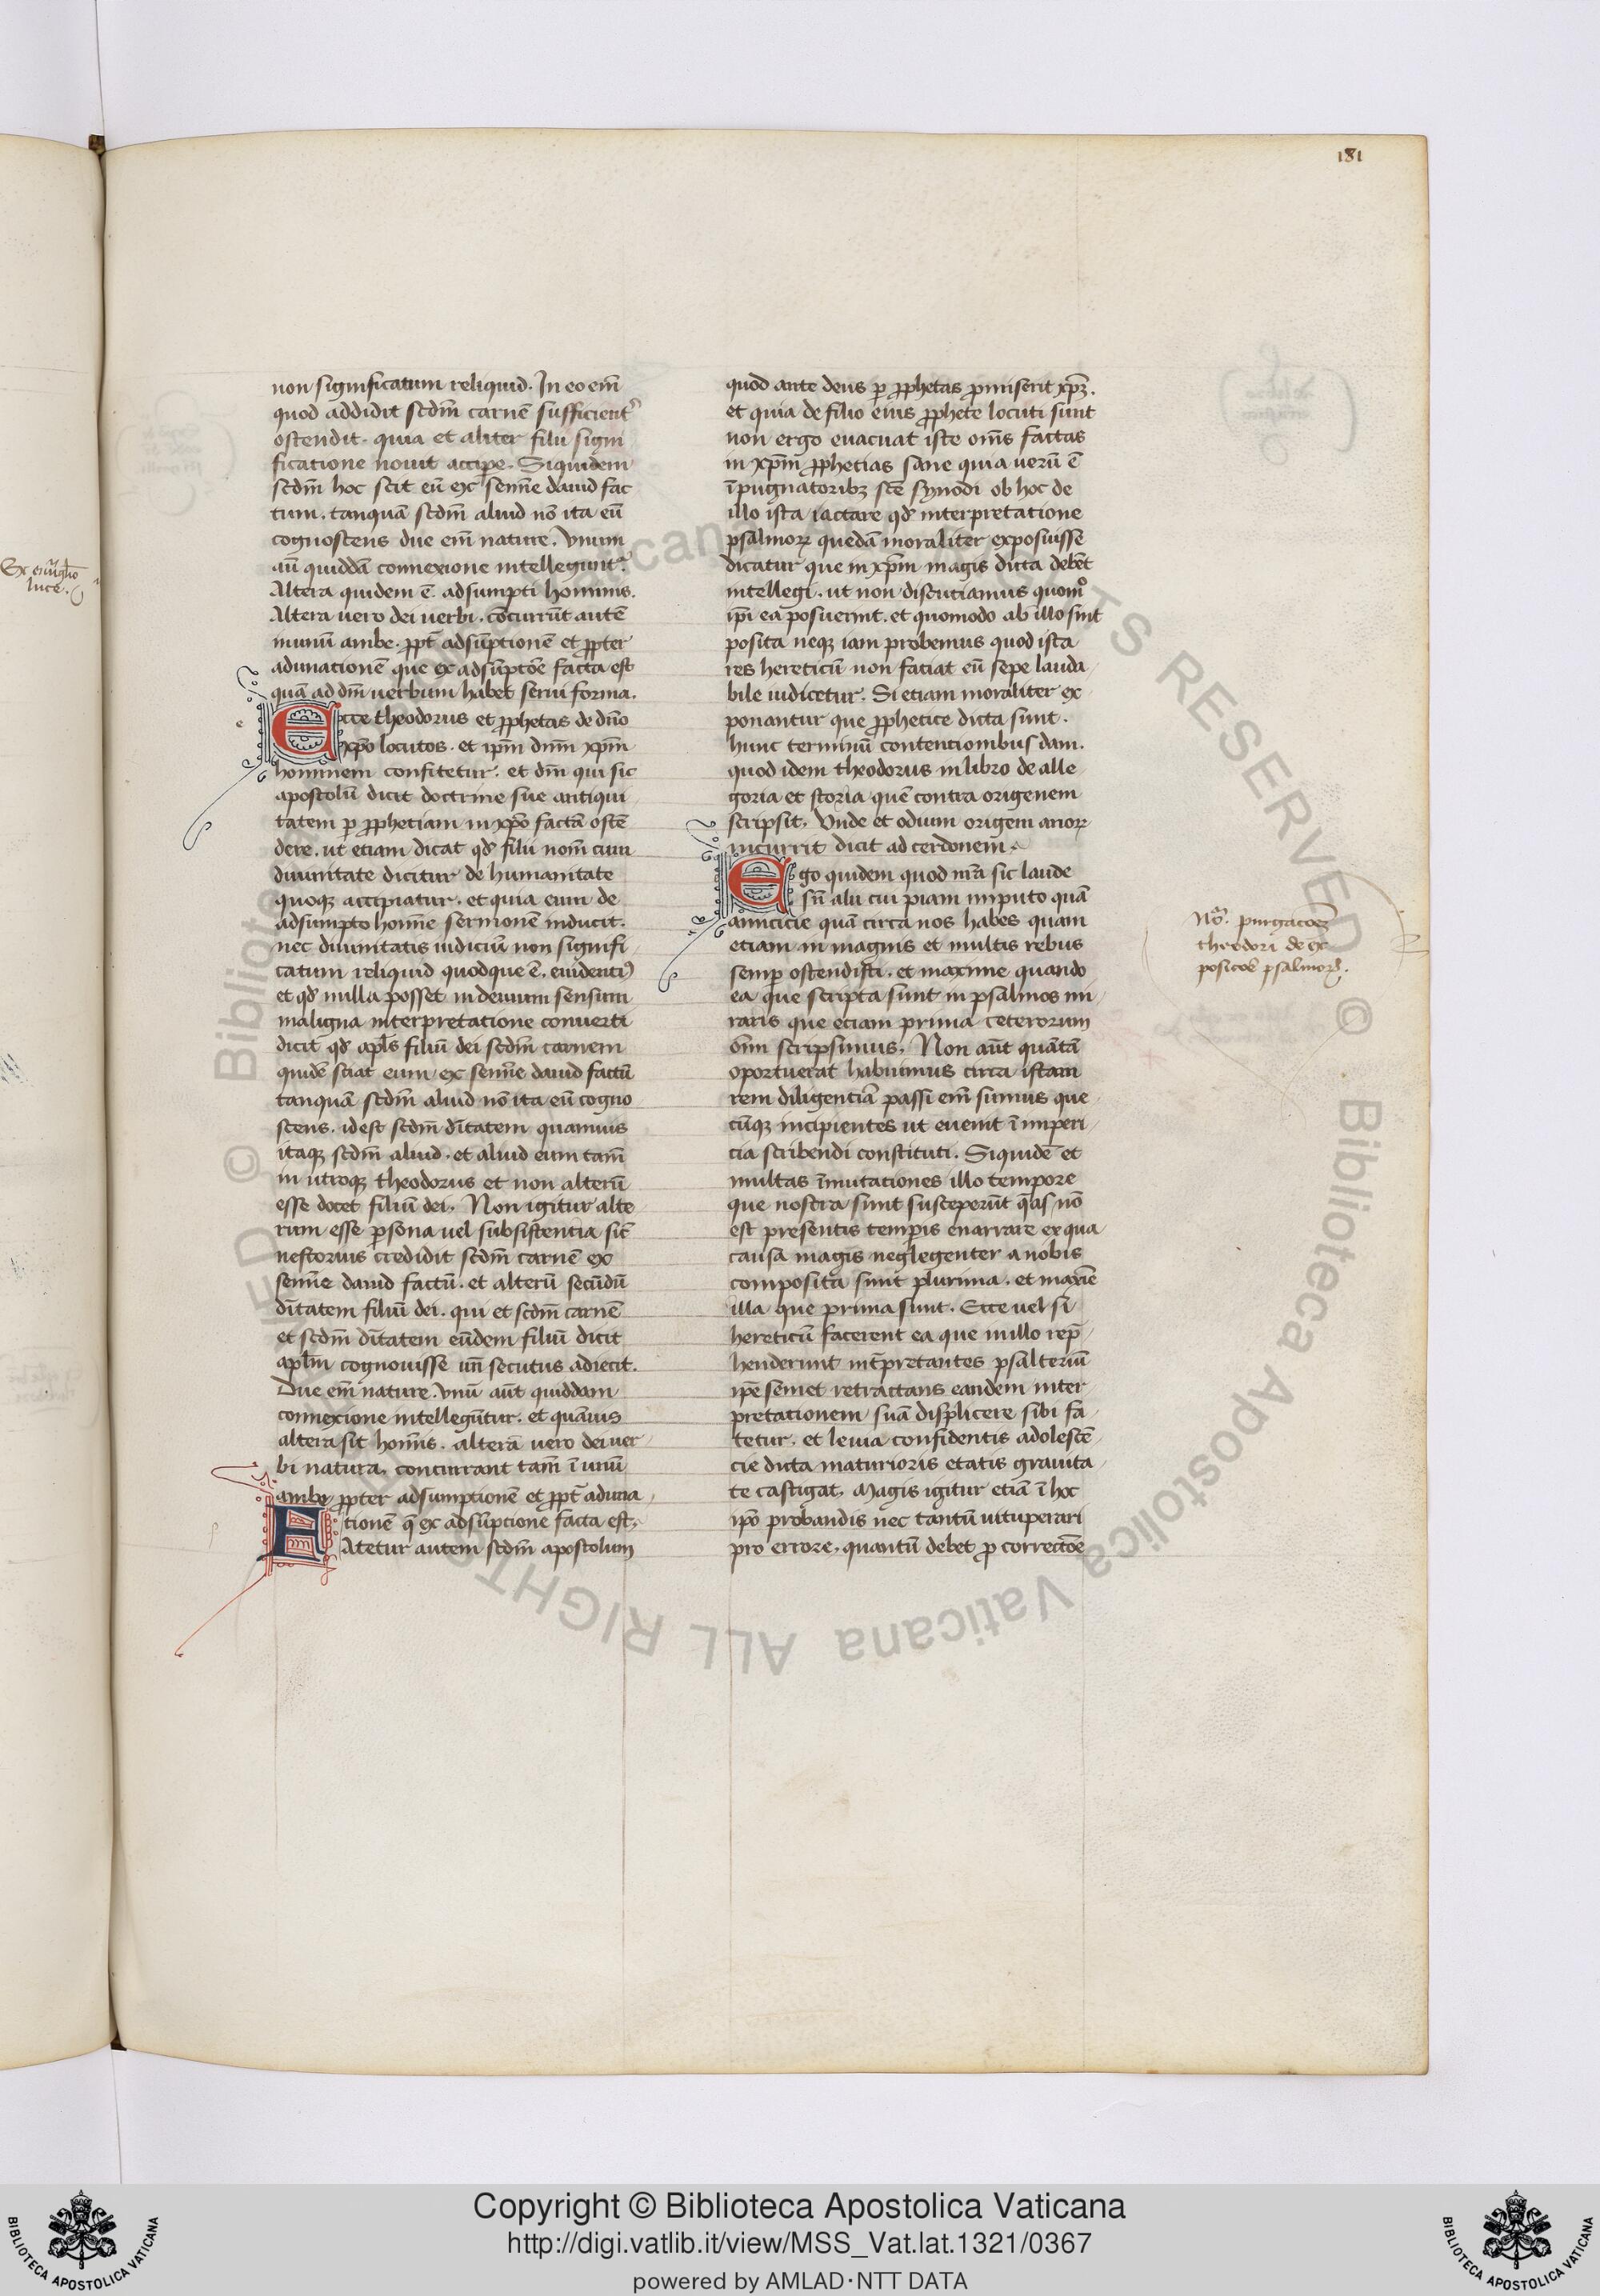 181
non significatum reliquid. In eo em̄
quod addidit scdm̄ carnē sufficient᷑
ostendit. quia et aliter filii signi
ficatione nouit accipe. Siquidem
scdm̄ hoc scit eū ex semīe dauid fac
tum. tanquā scdm̄ aliud nō ita eū
cognoscens due em̄ nature. Vnum
aūt quiddā connexione intelligunt᷑.
Altera quidem ē adsumpti hominis.
Altera uero dei uerbi. cōcurrūt autē
inunū ambe. ꝓpt̄ adsūptionē et ꝓpter
adunationē que ex adsūptōe facta est
quā ad dm̄ uerbum habet serui forma.
Ecce theodorus et ꝓphetas de dn̄o
xp̄o locutos. et ip̄m dnm̄ xp̄m
hominem confitetur. et dm̄ qui sic
apostolū dicit doctrine sue antiqui
tatem ꝑ ꝓphetiam in xp̄o factā ostē
dere. ut etiam dicat qd̓ filii nom̄ cum
diuinitate dicitur de humanitate
quoqꝫ accipiatur. et quia eum de
adsumpto homīe sermonē inducit.
nec diuinitatis iudiciū non signifi
catum reliquid quodque ē. euident᷑
et qd̓ nulla posset in deuium sensum
maligna interpretatione conuerti
dicit qd̓ apl̄s filiū dei scdm̄ carnem
quidē sciat eum ex semīe dauid factū
tanquā scdm̄ aliud nō ita eū cogno
scens. id est scdm̄ dītatem quamuis
itaqꝫ scdm̄ aliud. et aliud eum tam̄
in utroqꝫ theodorus et non alterū
esse docet filiū dei. Non igitur alte
rum esse ꝑsona uel subsistentia sic̄
nestorius credidit scdm̄ carnē ex
semīe dauid factū. et alterū secūdū
dītatem filiū dei. qui et scdm̄ carnē
et scdm̄ dītatem eūdem filiū dicit
aplm̄ cognouisse un̄ secutus adiecit.
Due em̄ nature. Vnū aūt quiddam
connexione intellegūtur. et quāuis
altera sit homīs. alterā uero dei uer
bi natura. concurrant tam̄ ī unū
ambe ꝓpter adsumptionē et ꝓpt̄ aduna
tionē q̄ ex adsūptione facta est.
FAtetur autem scdm̄ apostolum
quod ante deus ꝑ ꝓphetas ꝓmiserit xp̄ꝫ.
et quia de filio eius ꝓphete locuti sunt
non ergo euacuat iste om̄s factas
in xp̄m ꝓphetias sane quia uerū ē
īpugnatoribꝫ scē synodi ob hoc de
illo ista iactare qd̓ interpretatione
psalmoꝝ quedā moraliter exposuisse
dicatur que in xp̄m magis dicta debēt
intellegi. ut non discutiamus quomo
ip̄i ea posuerint. et quomodo ab illo sint
posita neqꝫ iam probemus quod ista
res hereticū non faciat cū sepe lauda
bile iudicetur. Si etiam moraliter ex
ponantur que ꝓphetice dicta sunt.
hunc terminū contentionibus dam.
quod idem theodorus in libro de alle
goria et storia quē contra origenem
scripsit. Vnde et odium origeni anoꝝ
incurrit dicit ad cerdonem.
Ego quidem quod mr̄a sic laude
sn̄ alii cui piam imputo quā
amicicie quā circa nos habes quam
etiam in magnis et multis rebus
semꝑ ostendisti. et maxime quando
ea que scripta sunt in psalmos mi
raris que etiam prima ceterorum
om̄i scripsimus. Non aūt quātā
oportuerat habuimus circa istam
rem diligentiā passi em̄ sumus que
cūqꝫ incipientes ut euenit ī imperi
cia scribendi constituti. Siquidē et
multas īmutationes illo tempore
que nostra sunt susceperūt q̄as nō
est presentis temꝑis enarrare ex qua
causa magis neglegenter a nobis
composita sunt plurima. et maxīe
illa que prima sunt. Ecce uel si
hereticū facerent ea que in illo rep̄
henderunt int̄pretantes psalteriū
ip̄e semet retractans eandem inter
pretationem suā displicere sibi fa
tetur. et leuia confidentis adolescē
cie dicta maturioris etatis grauita
te castigat. Magis igitur etiā ī hoc
ip̄o probandis nec tantū uituperari
pro errore. quantū debet ꝑ correctōē
Nō. purgacōeꝫ
theodori de ex
posicōe psalmoꝝ.
Ex euāgl̄io
luce.
Copyright © Biblioteca Apostolica Vaticana
http://digi.vatlib.it/view/MSS_Vat.lat.1321/0367
powered by AMLAD·NTT DATA
BIBLIOTECA APOSTOLICA VATICANA
BIBLIOTECA APOSTOLICA VATICANA